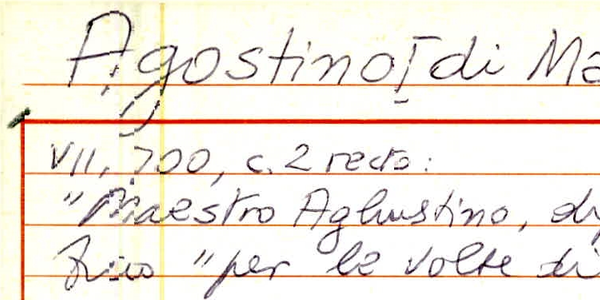 Agostino I di Ma
VII, 700, c. 2 recto:
"Maestro Aghustino, di
"per le volte di